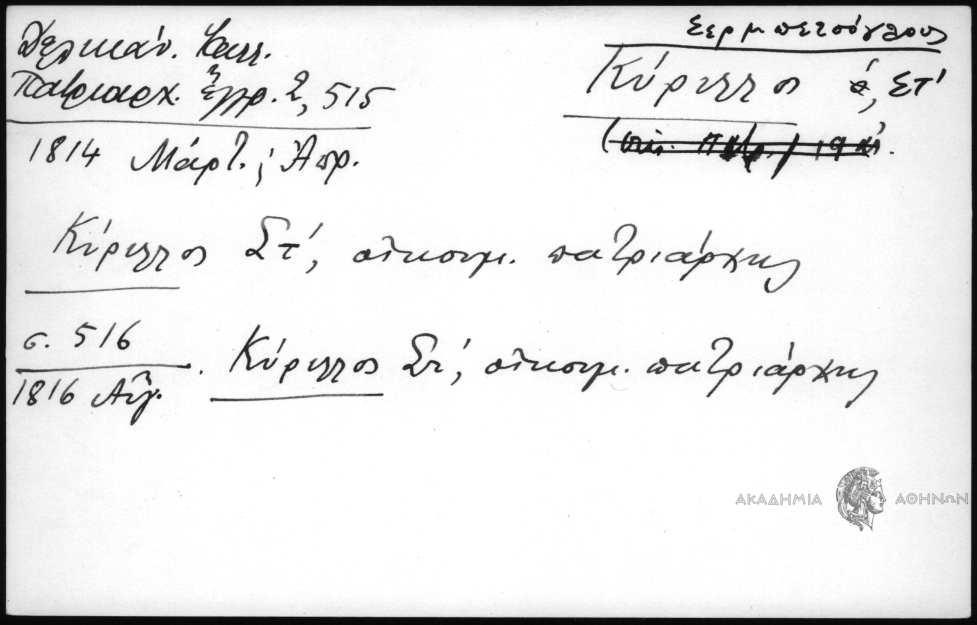 Σερμπετσόγλους
Δελικάν. Καλλ.
Πατριαρχ. Ἔγγρ. 2, 515
Κύριλλος ὁ, ΣΤ'
1814 Μάρτ. ; Ἀπρ.
Κύριλλος Στ', οἰκουμ. πατριάρχης
σ. 516
1816 Αὔγ. Κύριλλος Στ', οἰκουμ. πατριάρχης
ΑΚΑΔΗΜΙΑ ΑΘΗΝΩΝ